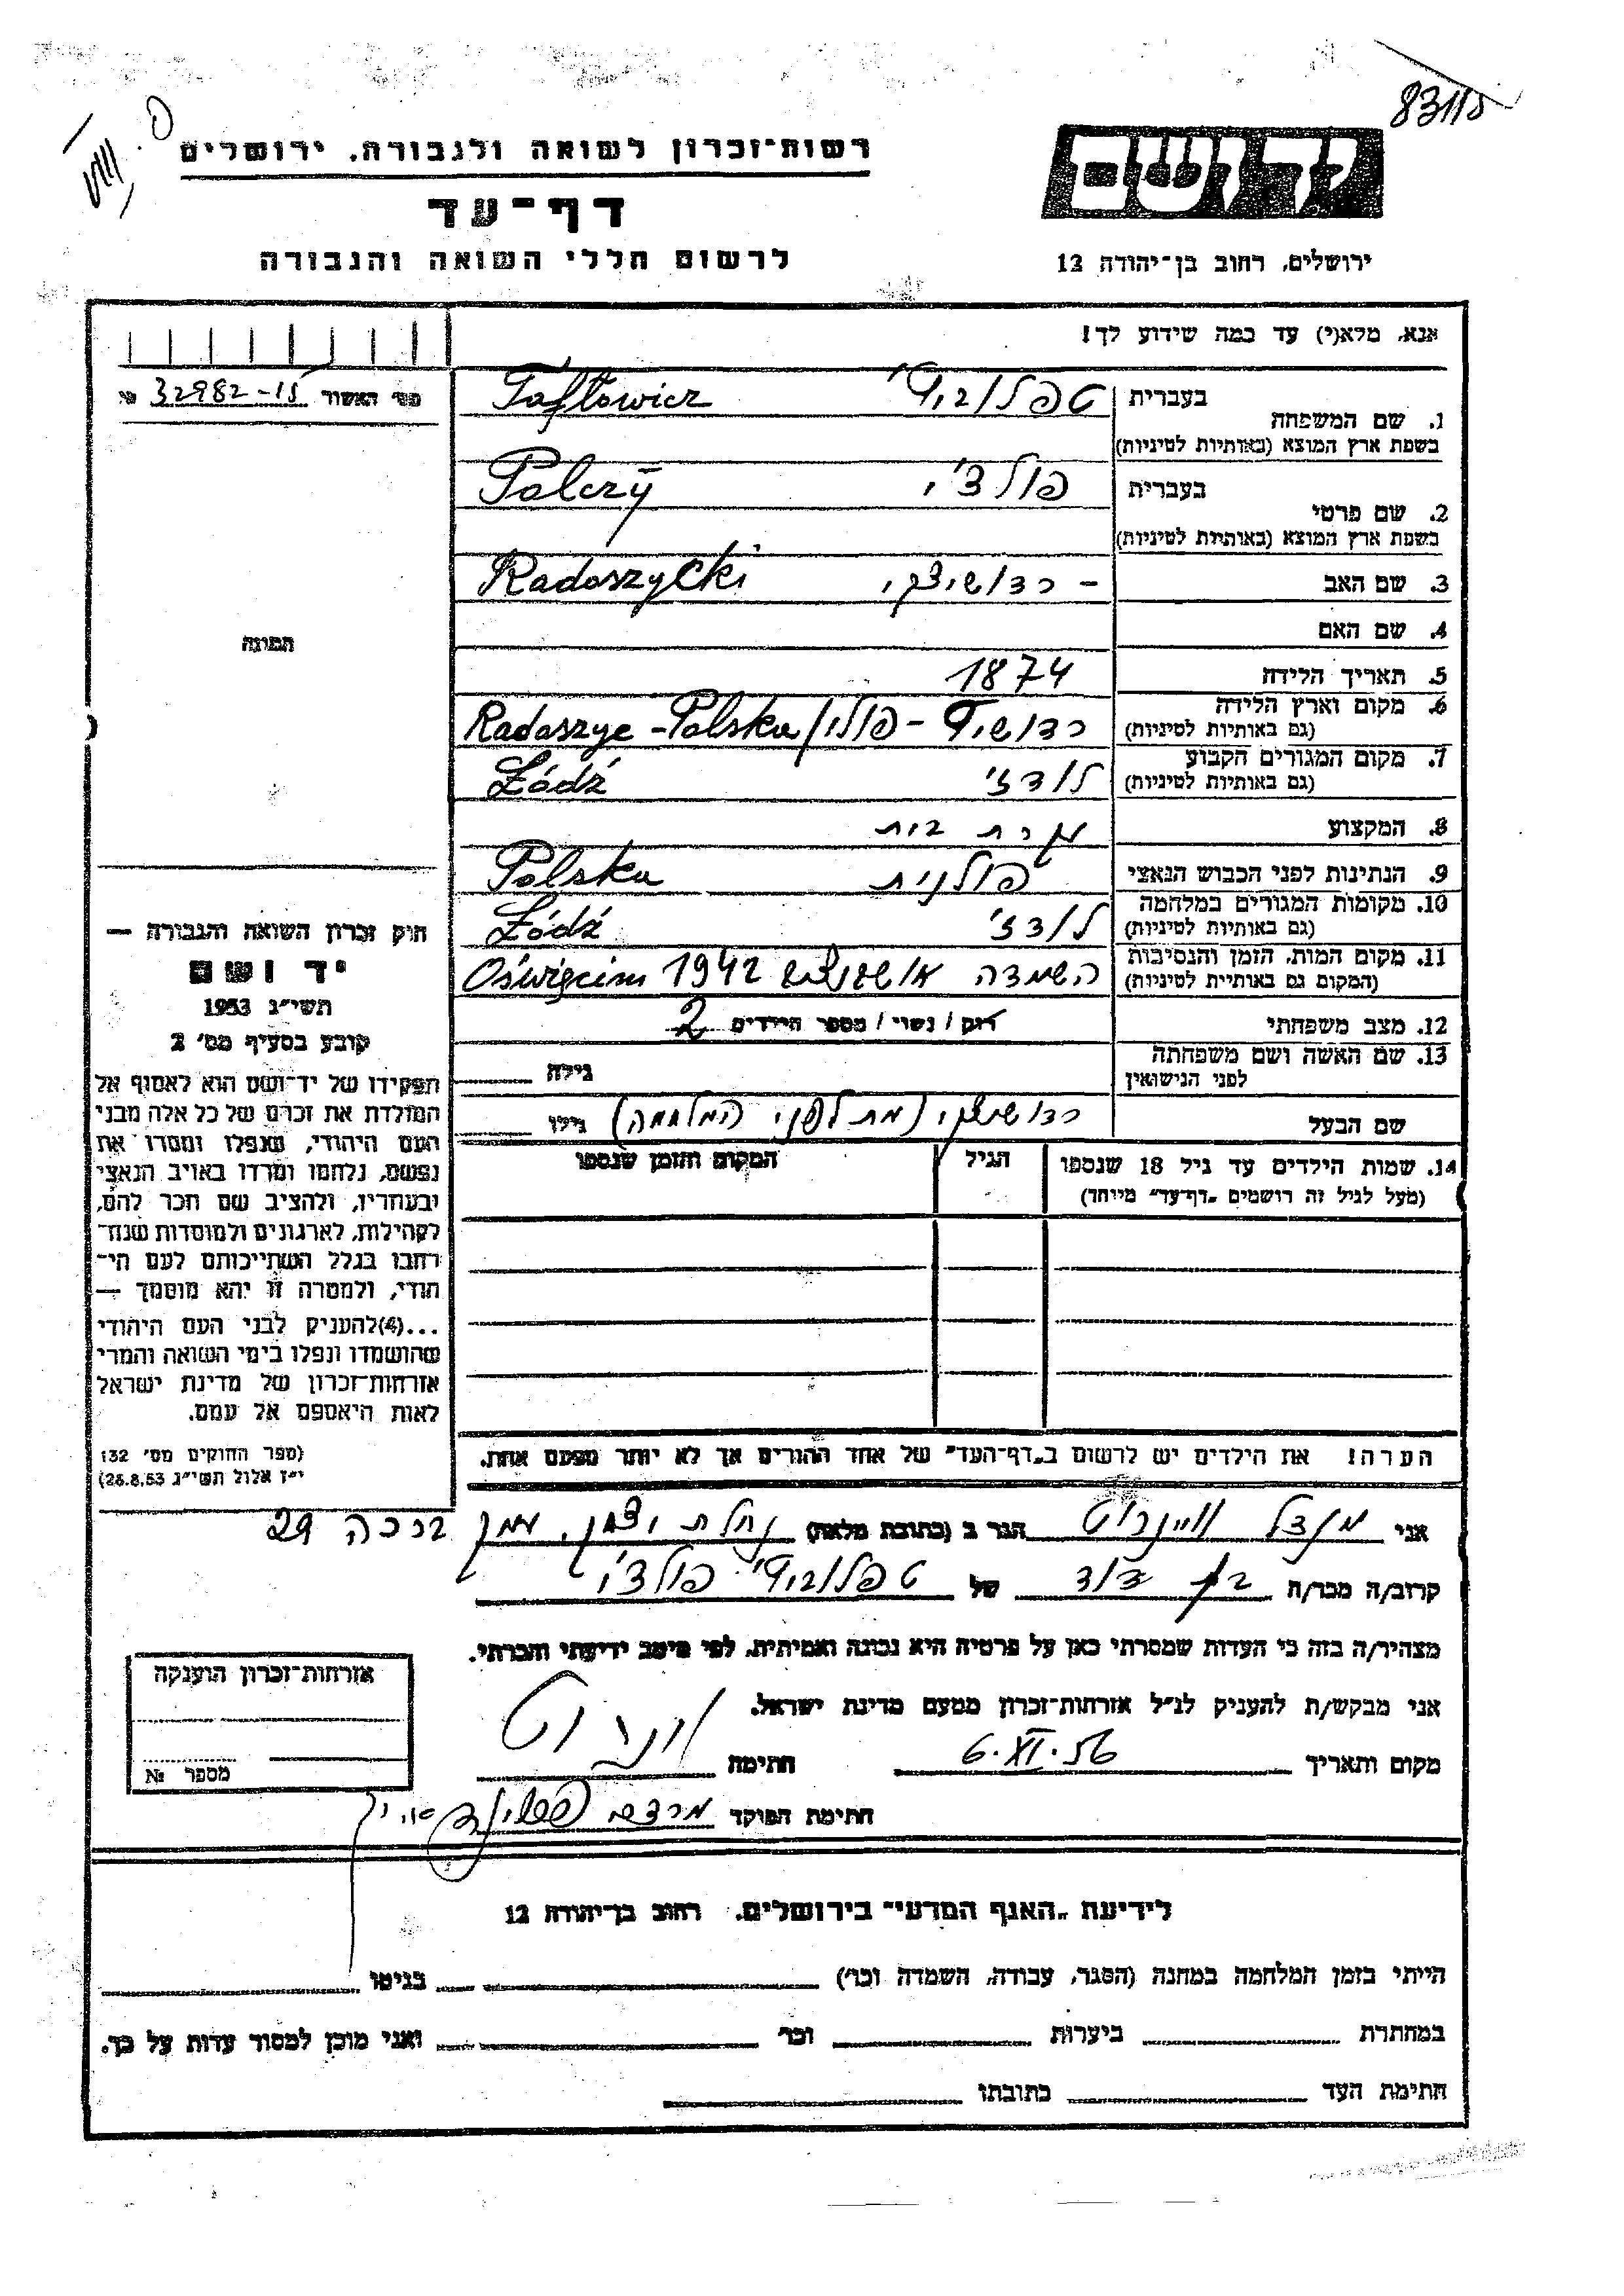 83115
רשות-זכרון לשואה ולגבורה. ירושלים
דף-עד
לרשום חללי השואה והגבורה
יד ושם
ירושלים, רחוב בן-יהודה 12
אנא, מלא(י) עד כמה שידוע לך!
מס' האשור 32982-15 №
1. שם המשפחה
בעברית טפלוביץ'
בשפת ארץ המוצא (באותיות לטיניות) Taftowicz
2. שם פרטי
בעברית פולצ'י
בשפת ארץ המוצא (באותיות לטיניות) Polczy
3. שם האב - רדושיצקי Radoszycki
4. שם האם
5. תאריך הלידה 1874
6. מקום וארץ הלידה רדושיץ - פולין / Radoszyce - Polska
(גם באותיות לטיניות)
7. מקום המגורים הקבוע לודז' Łódź
(גם באותיות לטיניות)
8. המקצוע עקרת בית
9. הנתינות לפני הכבוש הנאצי פולנית Polska
10. מקומות המגורים במלחמה לודז' Łódź
(גם באותיות לטיניות)
11. מקום המות, הזמן והנסיבות השמדה אושוינצים 1942 Oświęcim
(המקום גם באותיית לטיניות)
12. מצב משפחתי רוק / נשוי / מספר הילדים 2
13. שם האשה ושם משפחתה
לפני הנישואין גילה
שם הבעל רדושיצקי (מת לפני המלחמה) גילו
14. שמות הילדים עד גיל 18 שנספו הגיל המקום והזמן שנספו
(מעל לגיל זה רושמים "דף-עד" מייוחד)
הערה! את הילדים יש לרשום ב"דף-העד" של אחד ההורים אך לא יותר מפעם אחת.
התמונה
חוק זכרון השואה והגבורה —
יד ושם
תשי"ג 1953
קובע בסעיף מס' 2
תפקידו של יד-ושם הוא לאסוף אל
המולדת את זכרם של כל אלה מבני
העם היהודי, שנפלו ומסרו את
נפשם, נלחמו ומרדו באויב הנאצי
ובעוזריו, ולהציב שם וזכר להם,
לקהילות, לארגונים ולמוסדות שנח־
רבו בגלל השתייכותם לעם הי־
הודי, ולמטרה זו יהא מוסמך —
...(4)להעניק לבני העם היהודי
שהושמדו ונפלו בימי השואה והמרי
אזרחות-זכרון של מדינת ישראל
לאות היאספם אל עמם.
(ספר החוקים מס' 132
י"ז אלול תשי"ג 28.8.53)
אני מנדל ויינרוט הגר ב (כתובת מלאה) נחלת יצחק, עמק ברכה 29
קרוב/ה מכר/ה בן דוד של טפלוביץ' פולצ'י
מצהיר/ה בזה כי העדות שמסרתי כאן על פרטיה היא נכונה ואמיתית, לפי מיטב ידיעתי והכרתי.
אני מבקש/ת להעניק לנ"ל אזרחות-זכרון מטעם מדינת ישראל.
מקום ותאריך 6.XI.56 חתימה
חתימת הפוקד
אזרחות-זכרון הוענקה
מספר №
לידיעת "האגף המדעי" בירושלים, רחוב בן-יהודה 12
הייתי בזמן המלחמה במחנה (הסגר, עבודה, השמדה וכו') בגיטו
במחתרת ביערות וכו' ואני מוכן למסור עדות על כך.
חתימת העד כתובתו